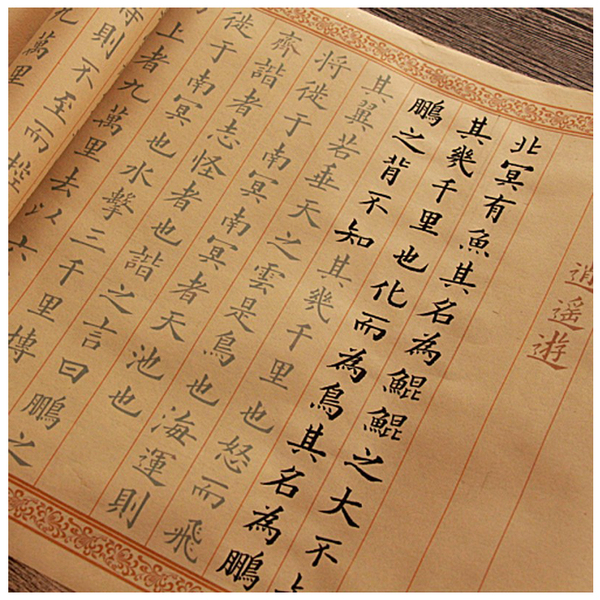 逍遙遊
北冥有魚其名為鯤鯤之大不
其幾千里也化而為鳥其名為鵬
鵬之背不知其幾千里也怒而飛
其翼若垂天之雲是鳥也海運則
將徙于南冥南冥者天池也
齊諧者志怪者也諧之言曰鵬之
徙于南冥也水擊三千里摶
上者九萬里去以六
則不至而控
九萬里